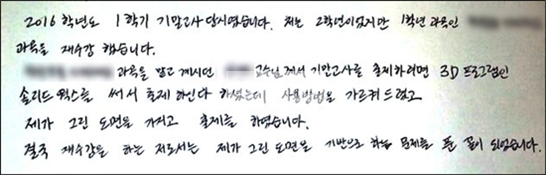 2016학년도 1학기 기말고사 당시였습니다. 저는 2학년이었지만 1학년 과목인
과목을 재수강 했습니다.
과목을 맡고 계시던 교수님께서 기말고사를 출제하려면 3D 프로그램인
솔리드웍스를 써서 출제 하신다 하셨는데 사용방법을 가르쳐드렸고
제가 그린 도면을 가지고 출제를 하였습니다.
결국 재수강을 하는 저로서는 제가 그린 도면을 기반으로 하는 문제를 푼 꼴이 되었습니다.